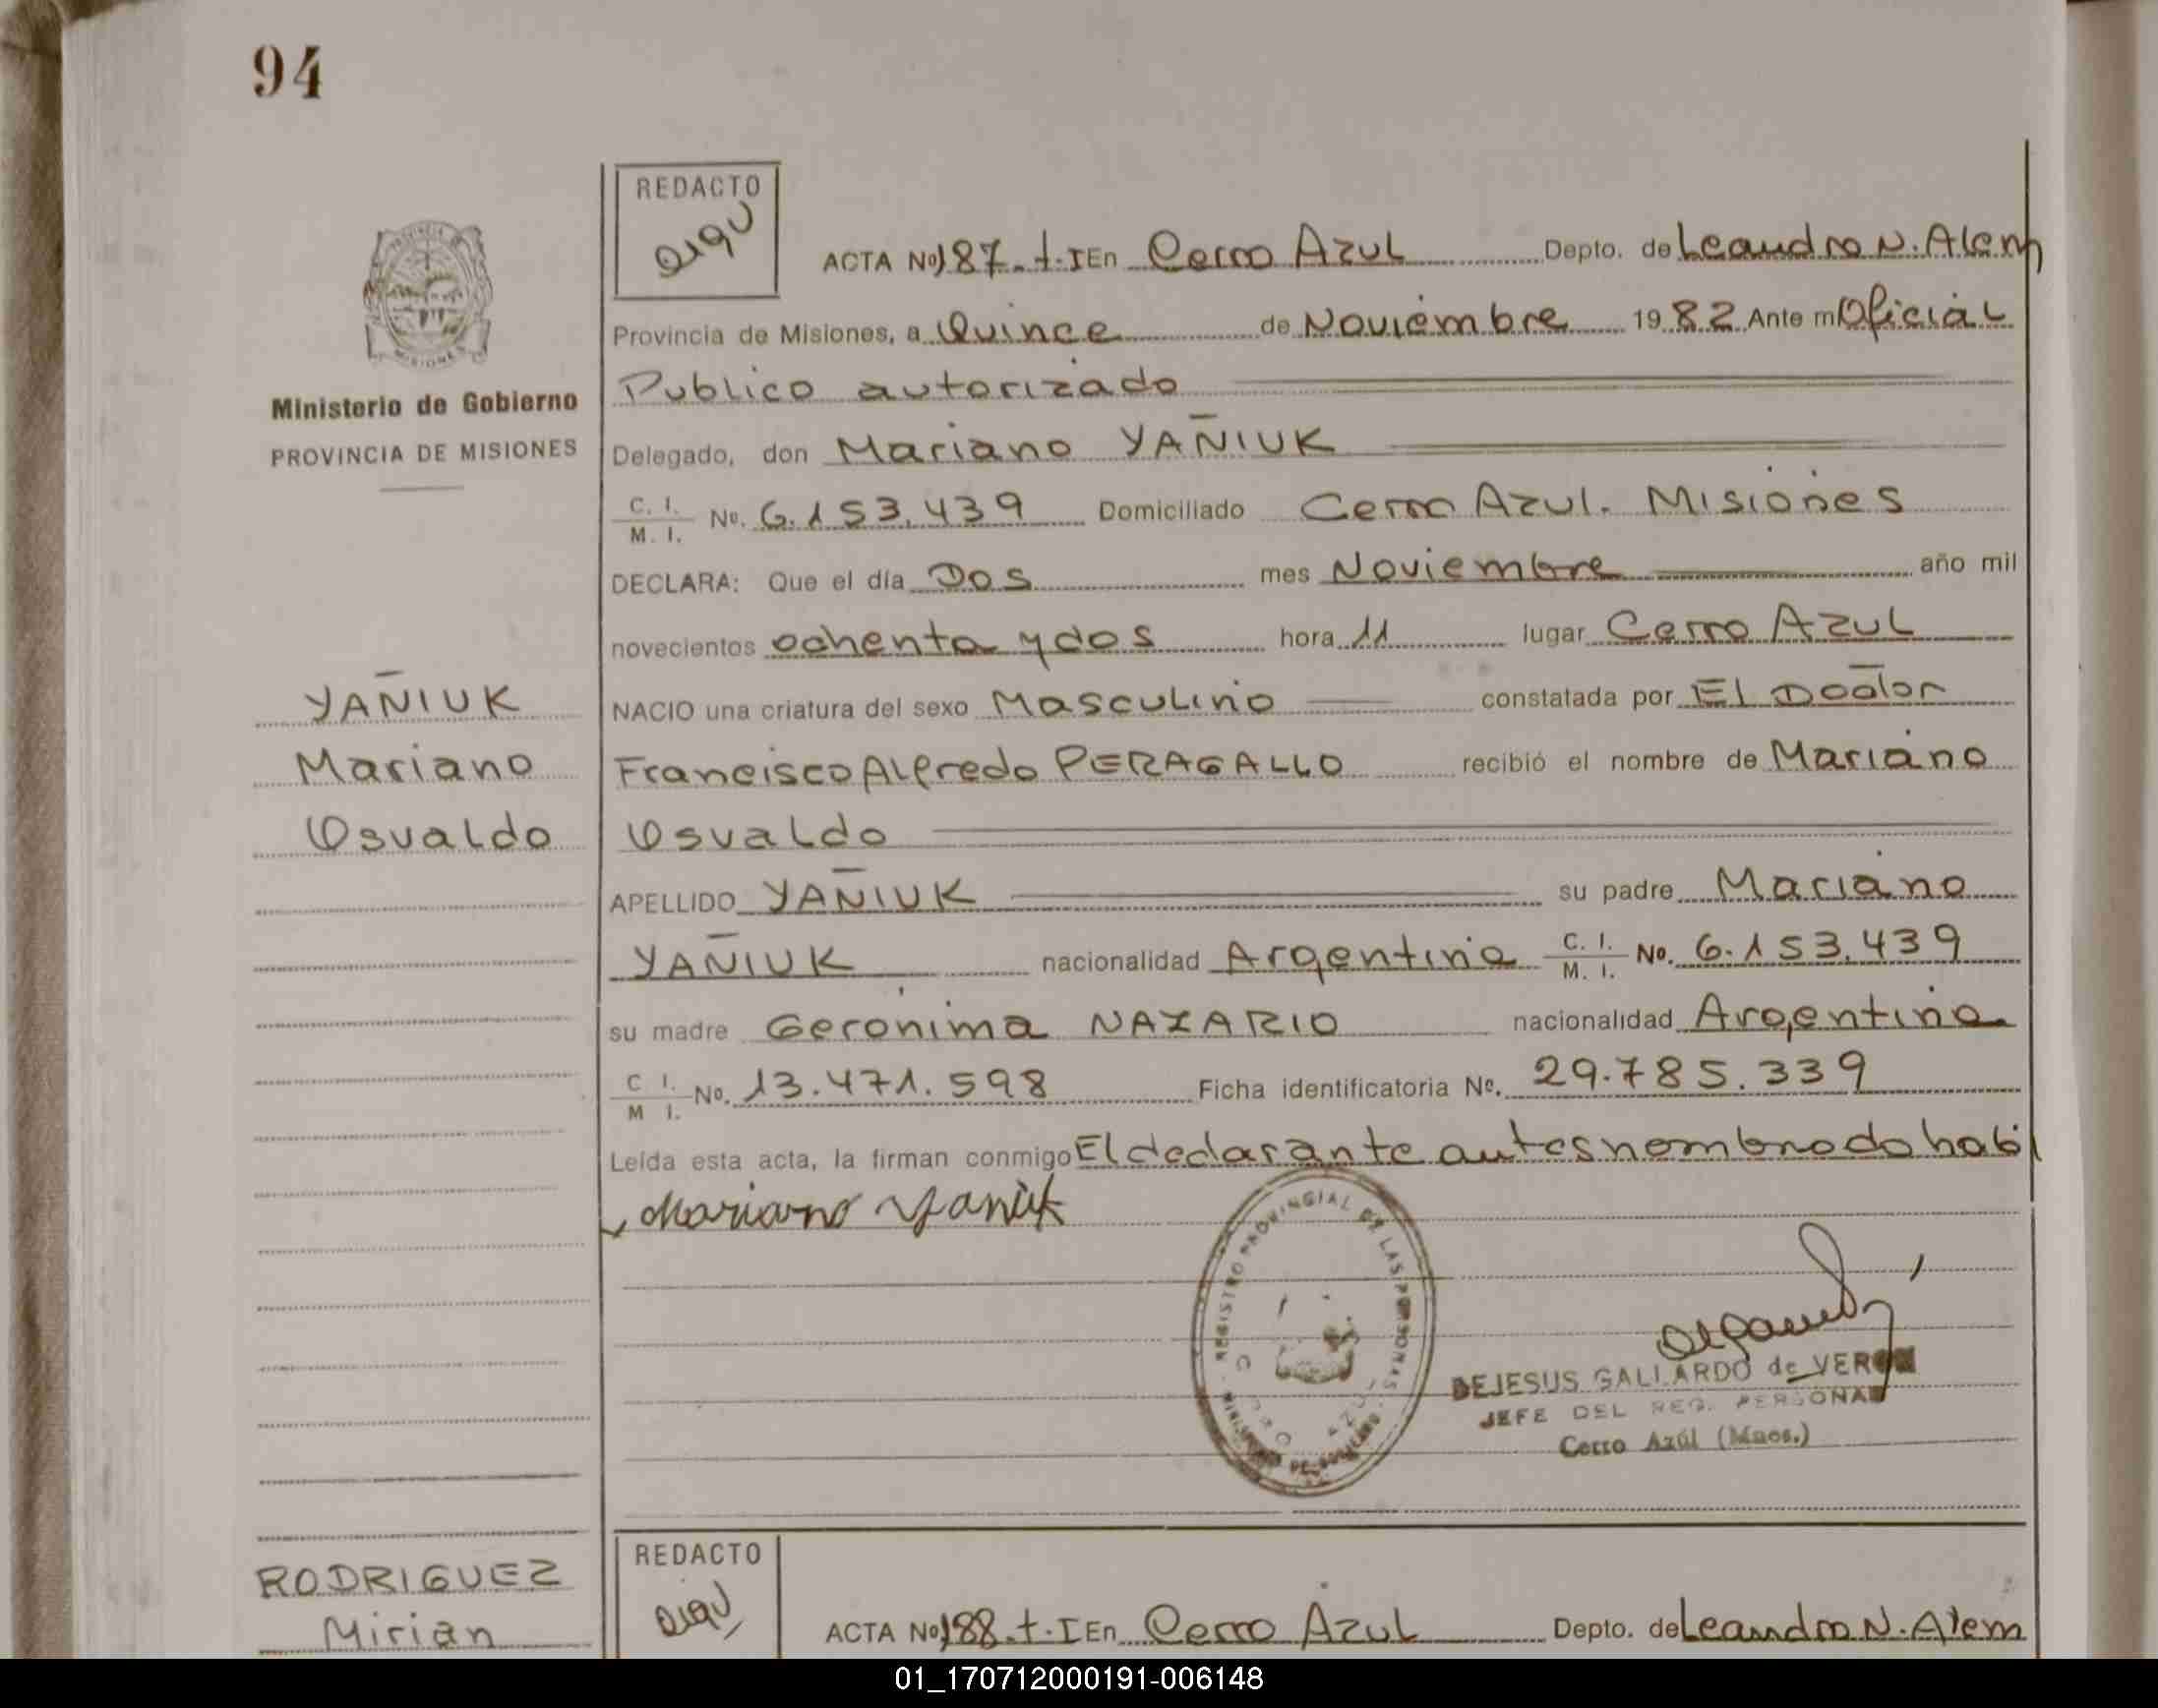 94
REDACTO
ACTA Nº 187. t. I En Cerro Azul Depto. de Leandro N. Alem
Provincia de Misiones, a Quince de Noviembre 1982 Ante mi Oficial
Publico autorizado
Ministerio de Gobierno
PROVINCIA DE MISIONES
Delegado, don Mariano YAÑIUK
C. I. / M. I. Nº. 6.153.439 Domiciliado Cerro Azul. Misiones
DECLARA: Que el día Dos mes Noviembre año mil
novecientos ochenta y dos hora 11 lugar Cerro Azul
YAÑIUK
Mariano
Osvaldo
NACIO una criatura del sexo Masculino constatada por El Doctor
Francisco Alfredo PERAGALLO recibió el nombre de Mariano
Osvaldo
APELLIDO YAÑIUK su padre Mariano
YAÑIUK nacionalidad Argentina C. I. / M. I. Nº. 6.153.439
su madre Gerónima NAZARIO nacionalidad Argentina
C I. / M I. Nº. 13.471.598 Ficha identificatoria Nº. 29.785.339
Leída esta acta, la firman conmigo El declarante antes nombrado habil
Mariano Yaniuk
REGISTRO PROVINCIAL DE LAS PERSONAS
MINISTERIO DE GOBIERNO
CERRO AZUL
DEJESUS GALLARDO de VERON
JEFE DEL REG. PERSONAS
Cerro Azúl (Mnes.)
RODRIGUEZ
Mirian
REDACTO
ACTA Nº 188. t. I En Cerro Azul Depto. de Leandro N. Alem
01_170712000191-006148